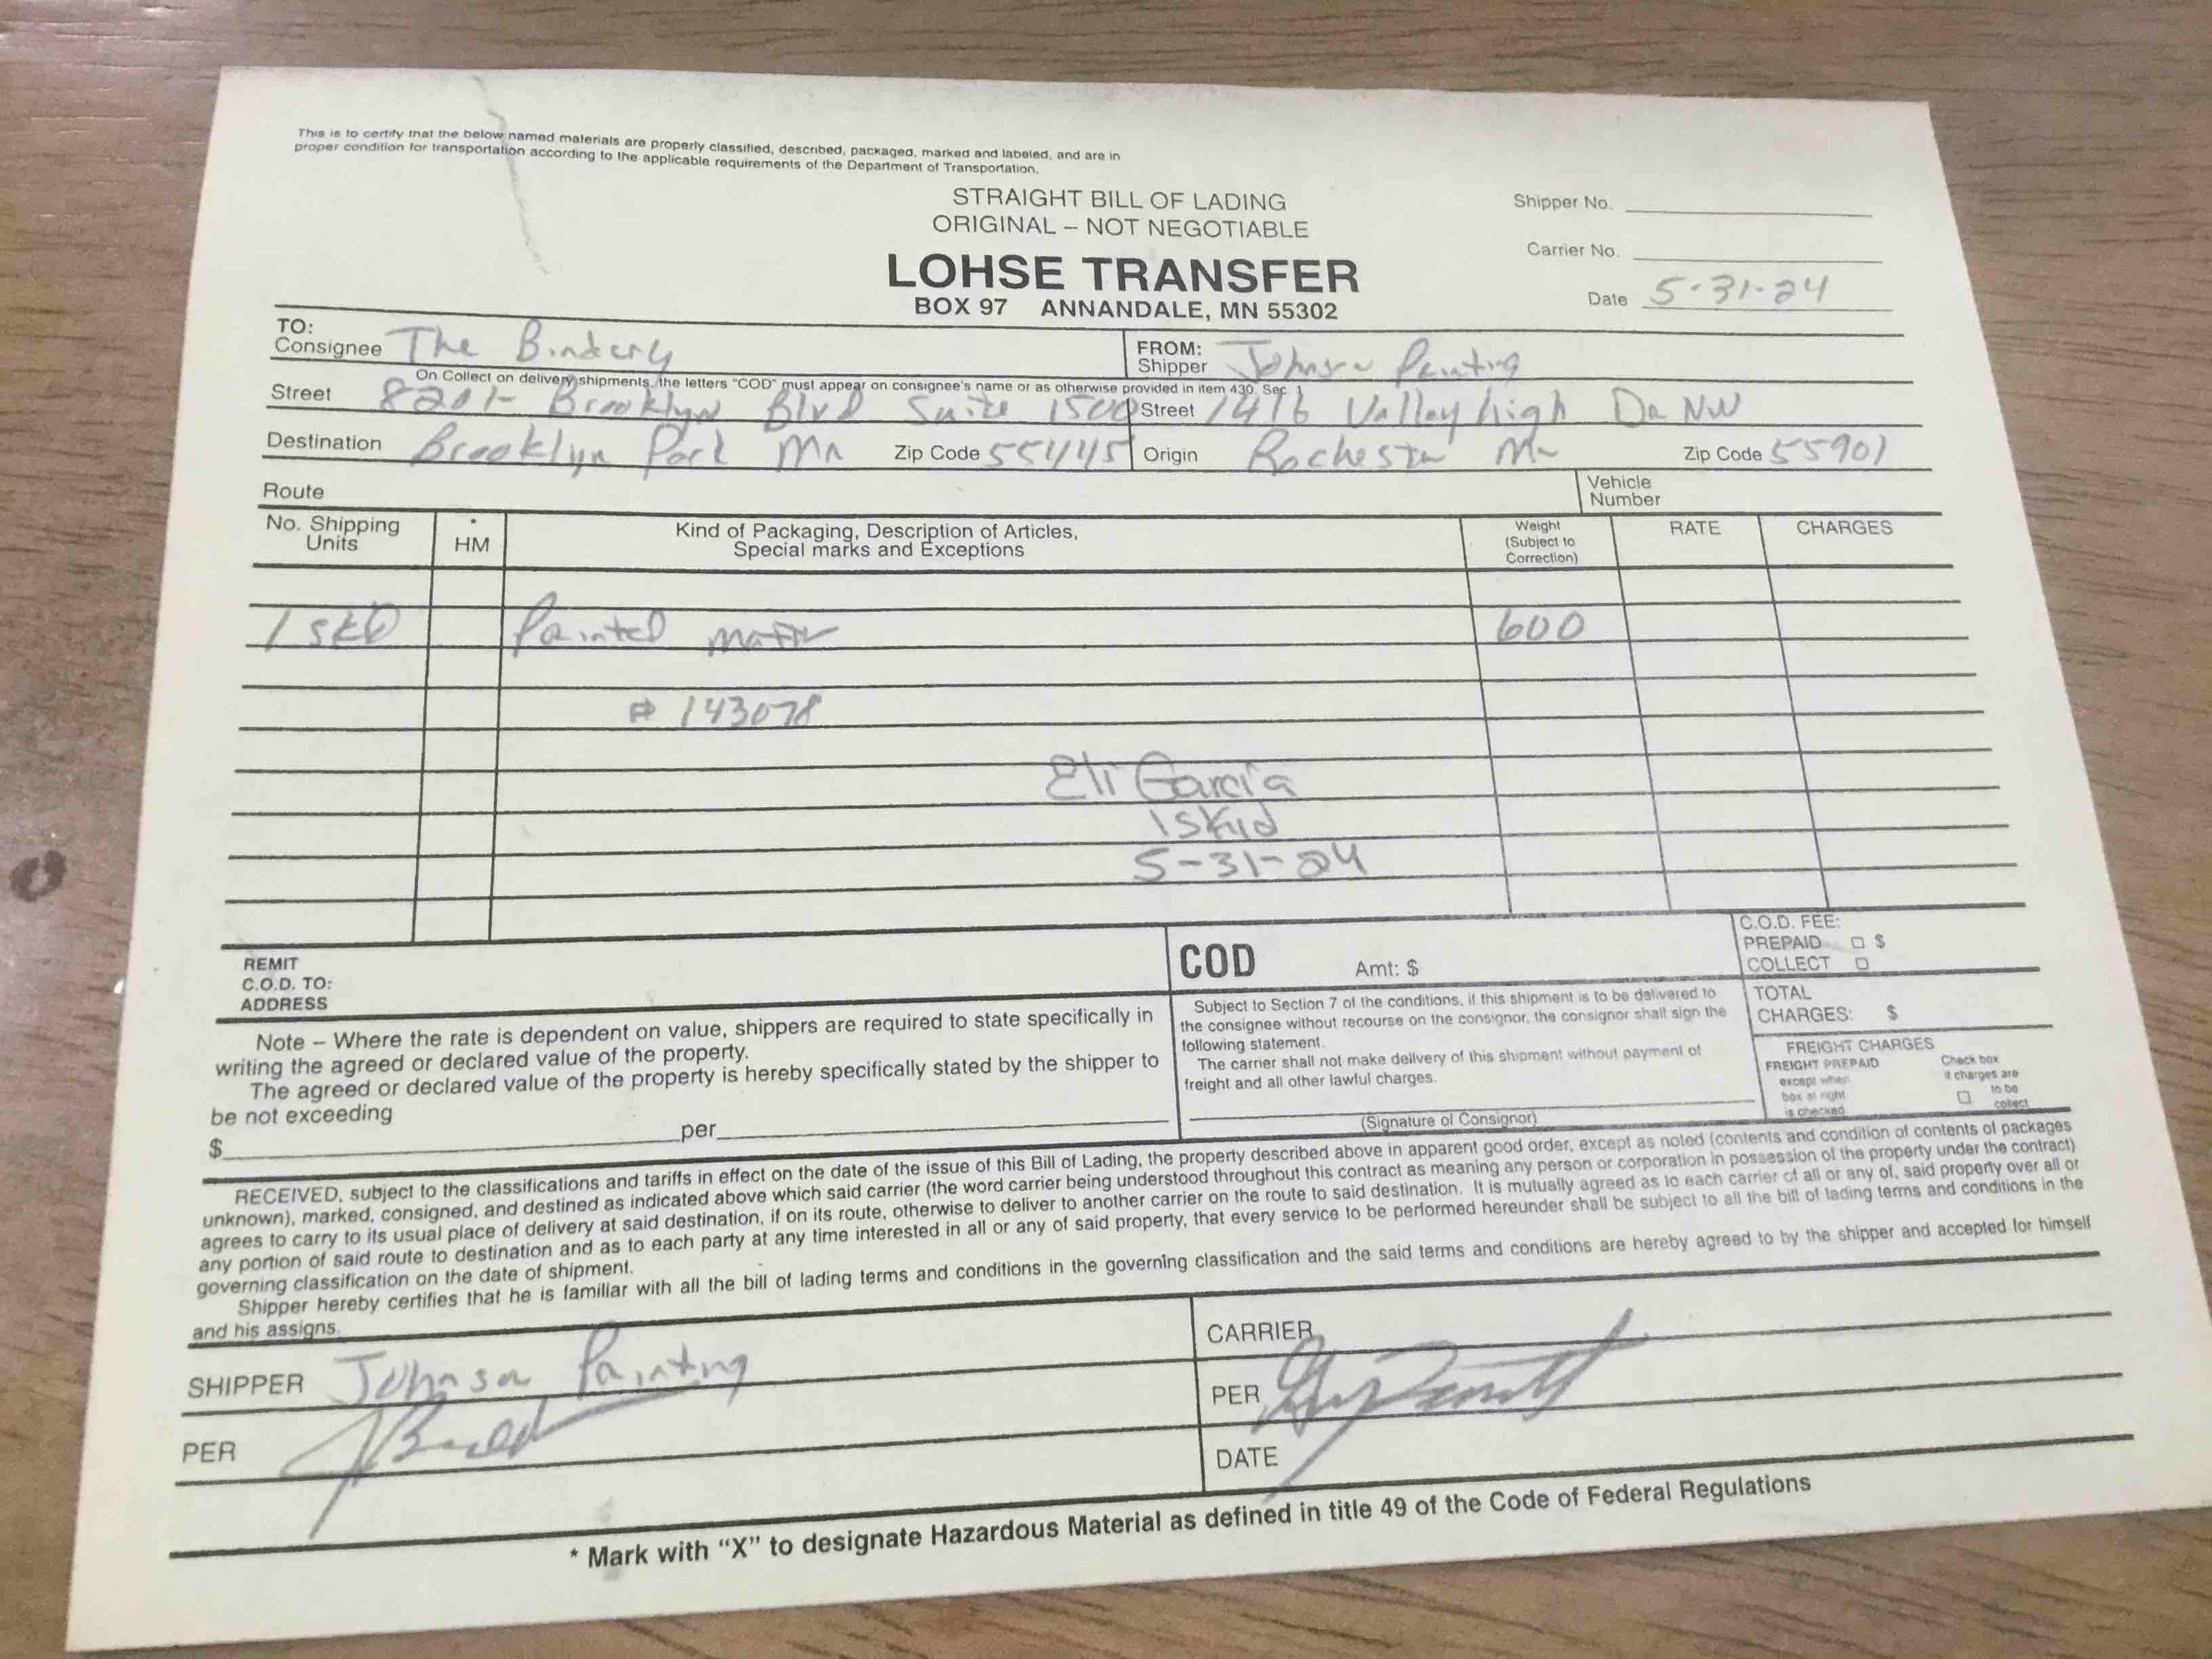 This is to certify that the below named materials are properly classified, described, packaged, marked and labeled, and are in
proper condition for transportation according to the applicable requirements of the Department of Transportation.
STRAIGHT BILL OF LADING
ORIGINAL – NOT NEGOTIABLE
LOHSE TRANSFER
BOX 97 ANNANDALE, MN 55302
Shipper No.
Carrier No.
Date 5-31-24
TO:
Consignee The Bindery
FROM:
Shipper Johnson Printing
On Collect on delivery shipments, the letters "COD" must appear on consignee's name or as otherwise provided in item 430, Sec. 1
Street 8201- Brooklyn Blvd Suite 1500
Street 1416 Valleyhigh Dr NW
Destination Brooklyn Park MN Zip Code 55445
Origin Rochester Mn Zip Code 55901
Route
Vehicle
Number
No. Shipping
Units
*
HM
Kind of Packaging, Description of Articles,
Special marks and Exceptions
Weight
(Subject to
Correction)
RATE
CHARGES
1 skd Printed matter 600
# 143078
Eli Garcia
1 skid
5-31-24
REMIT
C.O.D. TO:
ADDRESS
COD Amt: $
C.O.D. FEE:
PREPAID $
COLLECT
Note – Where the rate is dependent on value, shippers are required to state specifically in
writing the agreed or declared value of the property.
The agreed or declared value of the property is hereby specifically stated by the shipper to
be not exceeding
$ per
Subject to Section 7 of the conditions, if this shipment is to be delivered to
the consignee without recourse on the consignor, the consignor shall sign the
following statement.
The carrier shall not make delivery of this shipment without payment of
freight and all other lawful charges.
(Signature of Consignor)
TOTAL
CHARGES: $
FREIGHT CHARGES
FREIGHT PREPAID
except when
box at right
is checked
Check box
if charges are
to be
collect
RECEIVED, subject to the classifications and tariffs in effect on the date of the issue of this Bill of Lading, the property described above in apparent good order, except as noted (contents and condition of contents of packages
unknown), marked, consigned, and destined as indicated above which said carrier (the word carrier being understood throughout this contract as meaning any person or corporation in possession of the property under the contract)
agrees to carry to its usual place of delivery at said destination, if on its route, otherwise to deliver to another carrier on the route to said destination. It is mutually agreed as to each carrier of all or any of, said property over all or
any portion of said route to destination and as to each party at any time interested in all or any of said property, that every service to be performed hereunder shall be subject to all the bill of lading terms and conditions in the
governing classification on the date of shipment.
Shipper hereby certifies that he is familiar with all the bill of lading terms and conditions in the governing classification and the said terms and conditions are hereby agreed to by the shipper and accepted for himself
and his assigns.
SHIPPER Johnson Printing
PER
CARRIER
PER
DATE
* Mark with "X" to designate Hazardous Material as defined in title 49 of the Code of Federal Regulations